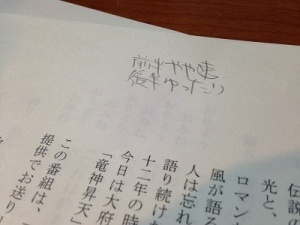 前半やや速
後半ゆったり
伝説の
光と、
ロマン
風が語る
人は忘れ
語り続け
十二年の時
今日は大府
「竜神昇天」
この番組は、
提供でお送りし